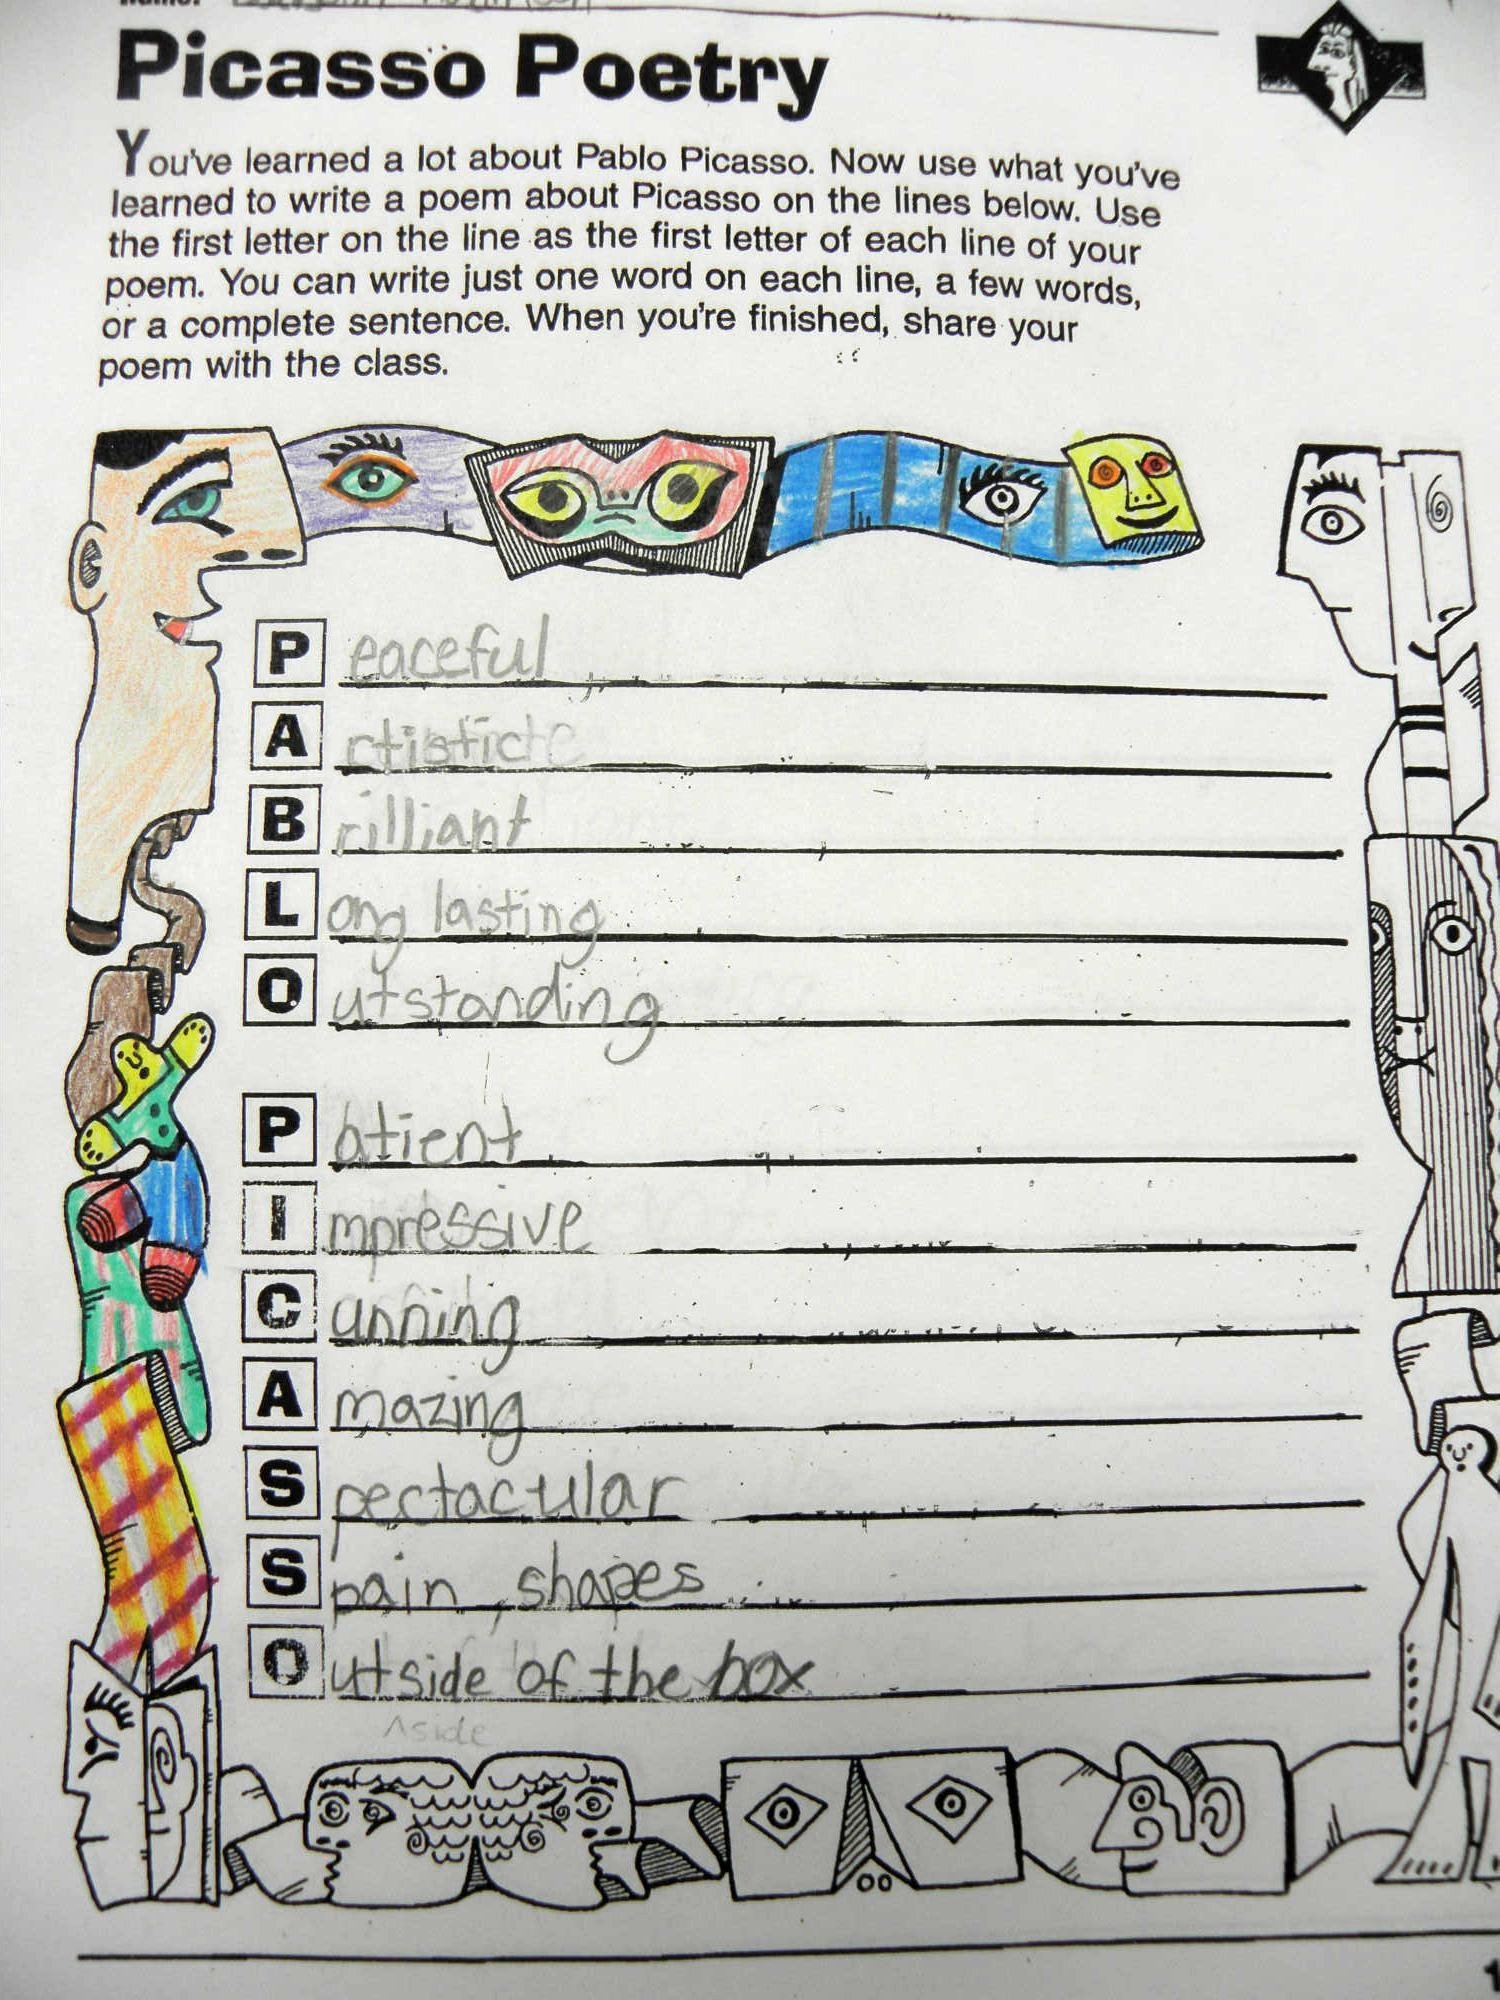 Picasso Poetry
You've learned a lot about Pablo Picasso. Now use what you've
learned to write a poem about Picasso on the lines below. Use
the first letter on the line as the first letter of each line of your
poem. You can write just one word on each line, a few words,
or a complete sentence. When you're finished, share your
poem with the class.
Peaceful
Artistic
Brilliant
Long lasting
Outstanding
Patient
Impressive
Cunning
Amazing
Spectacular
Spain, shapes
Outside of the box
Aside
1